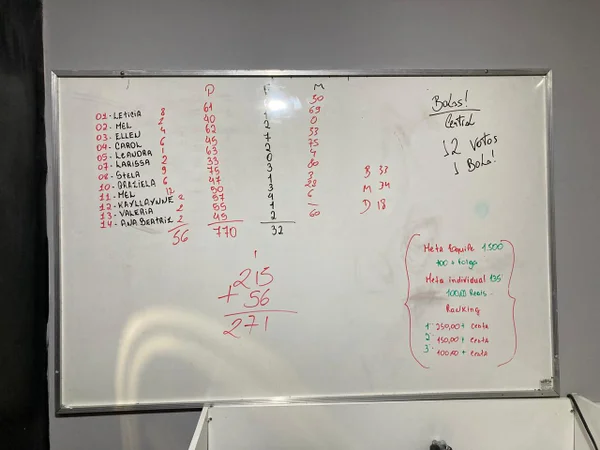 P F M
50
01 - LETICIA 8 61 1 69
02 - MEL 2 40 2 0
03 - ELLEN 4 62 7 53
04 - CAROL 6 45 2 75
05 - LEANDRA 1 63 0 4
07 - LARISSA 2 33 3 80
08 - STELA 9 75 1 3
10 - GRAZIELA 6 47 3
11 - MEL 12 50 6
12 - KAYLLAYNNE 2 57
13 - VALERIA 2 55 1
14 - ANA BEATRIZ 2 45 2 60
56 770 32
1
215
+ 56
271
B 33
M 34
D 18
Bolos!
Central
12 Votos
1 Bolo!
Meta Equipe 1.500
100 + Folga
Meta individual 135
100,00 Reais
Ranking
1º 250,00 + Cesta
2º 150,00 + Cesta
3º 100,00 + Cesta